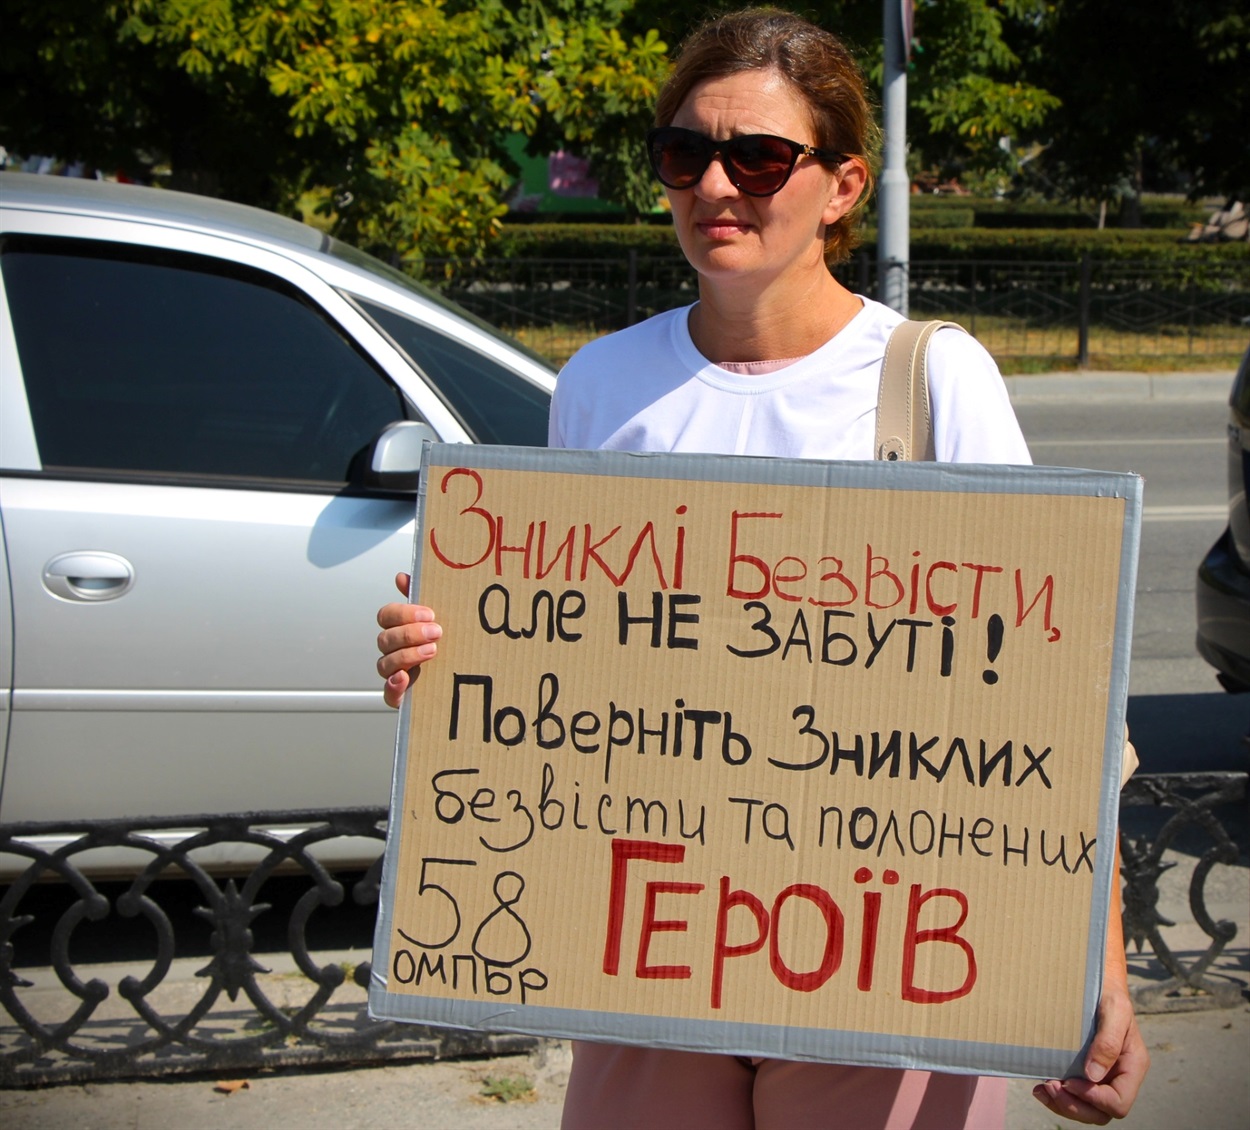 Зниклі Безвісти,
але НЕ ЗАБУТІ!
Поверніть Зниклих
безвісти та полонених
58 ГЕРОЇВ
ОМПБР